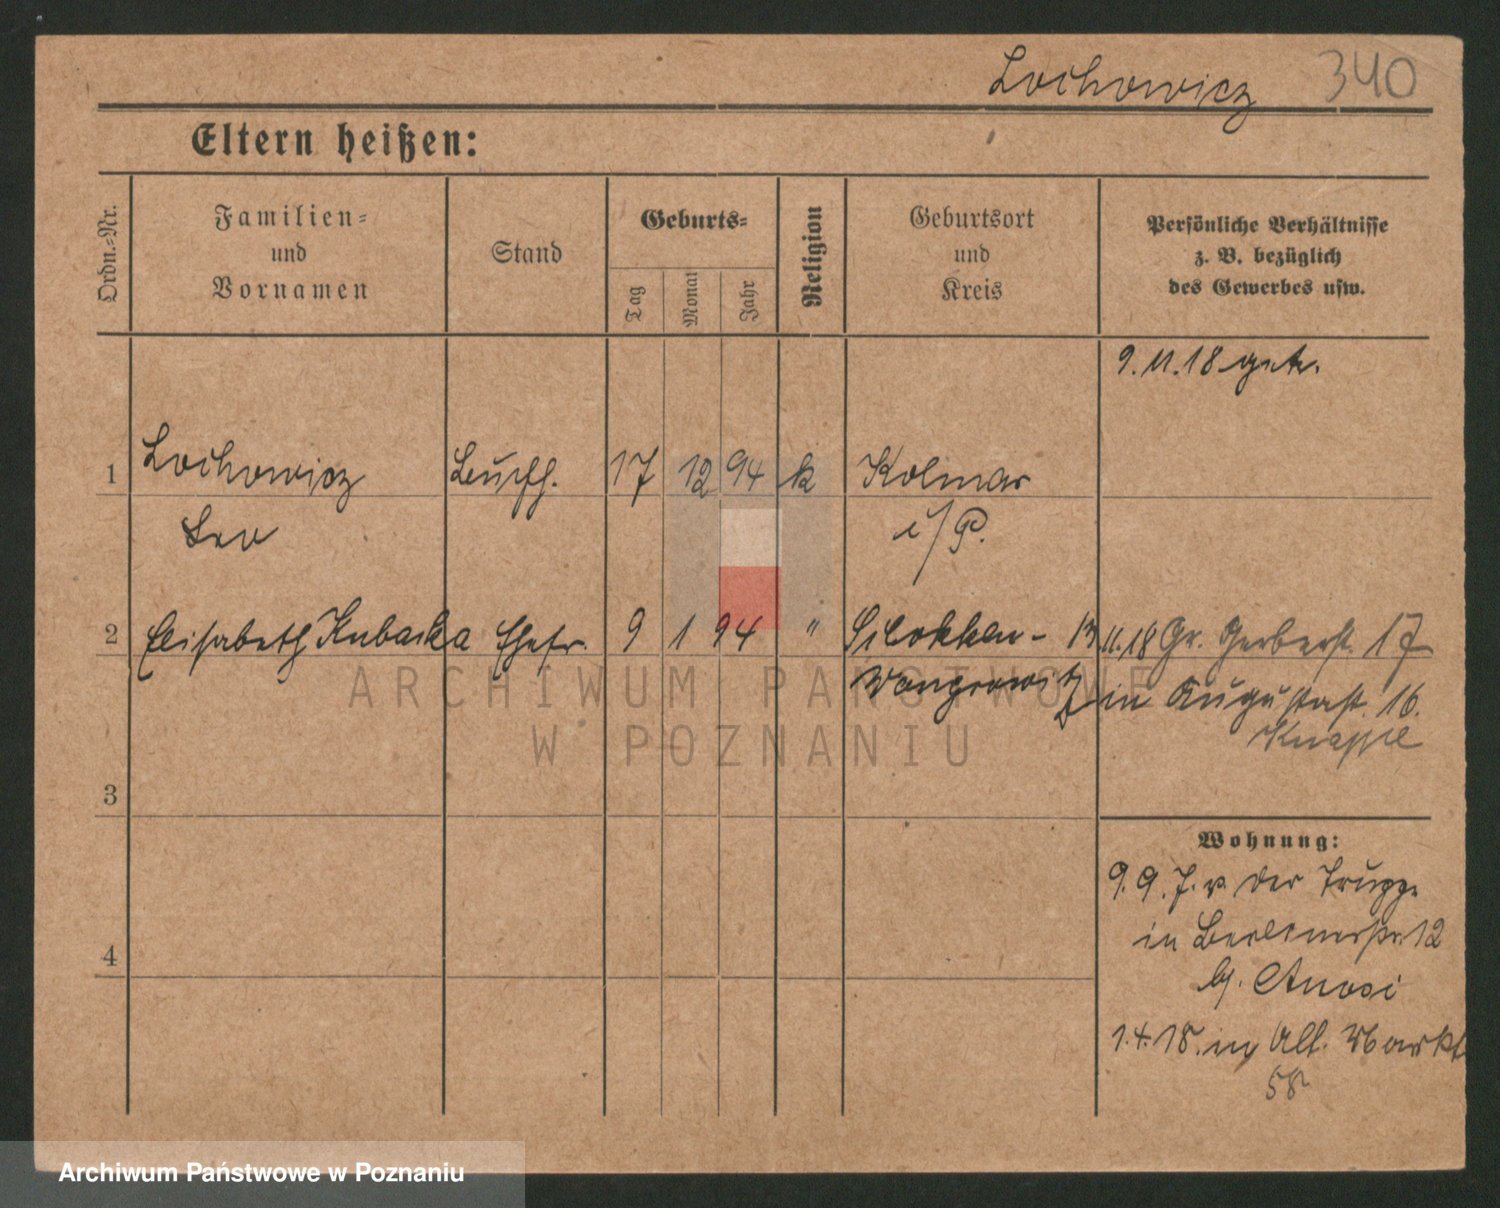 Lochowicz 340
Eltern heißen:
Ordn.-Nr.
Familien-
und
Vornamen
Stand
Geburts-
Tag
Monat
Jahr
Religion
Geburtsort
und
Kreis
Persönliche Verhältnisse
z. B. bezüglich
des Gewerbes usw.
9.11.18 getr.
1 Lochowicz 17 12 94 k Kolmar
Leo i/P.
2 Elisabeth Kubacka Ehefr. 9 1 94 " 13.11.18 Gr. Gerberst. 17
Wongrowitz in Augustast. 16.
3
Wohnung:
9.9. v. der Truppe
in Berlinerstr. 12
b/.
4
1.4.18. in Alt. Markt
58
ARCHIWUM PAŃSTWOWE
W POZNANIU
Archiwum Państwowe w Poznaniu